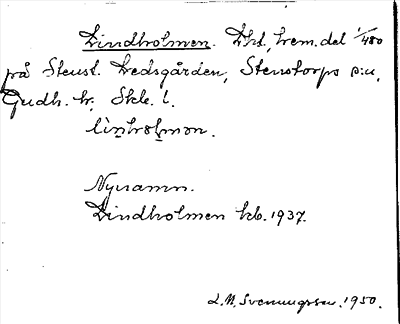 Lindholmen. Lht, hem.del 1/480
på Stenst. Ledsgården, Stenstorps s:n,
Gudh. hr, Skbr. l.
lìnholmən.
Nynamn.
Lindholmen kb. 1937.
L.M. Svenungsson. 1950.